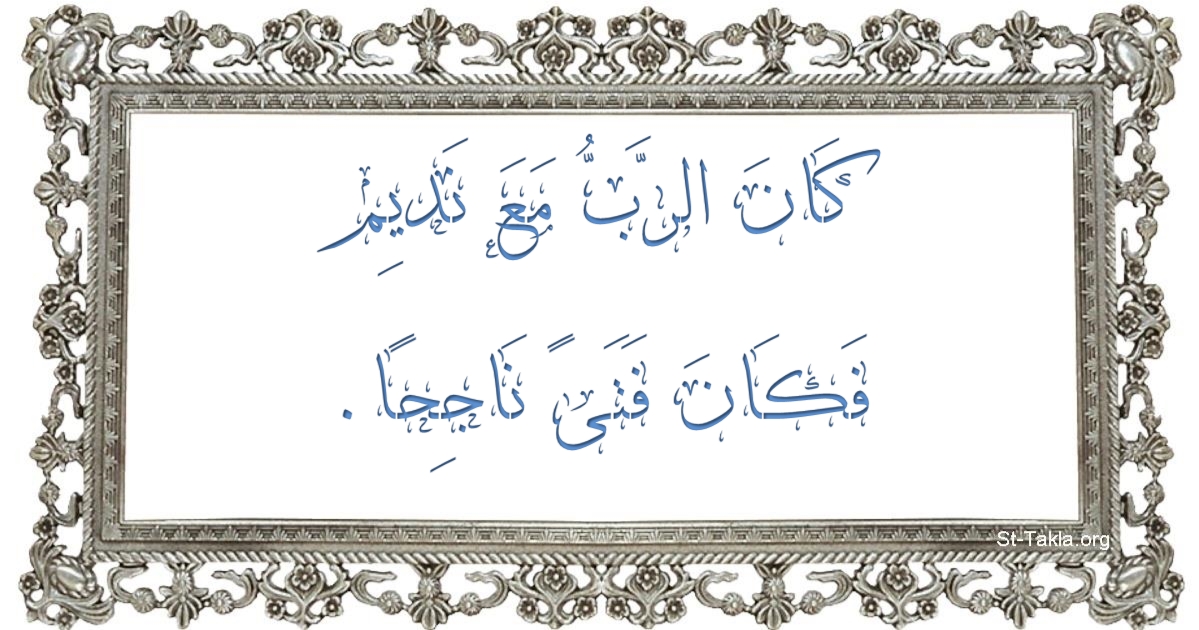 كَانَ الرَّبُّ مَعَ نَديِمِ
فَكَانَ فَتَىً نَاجِحًا .
St-Takla.org